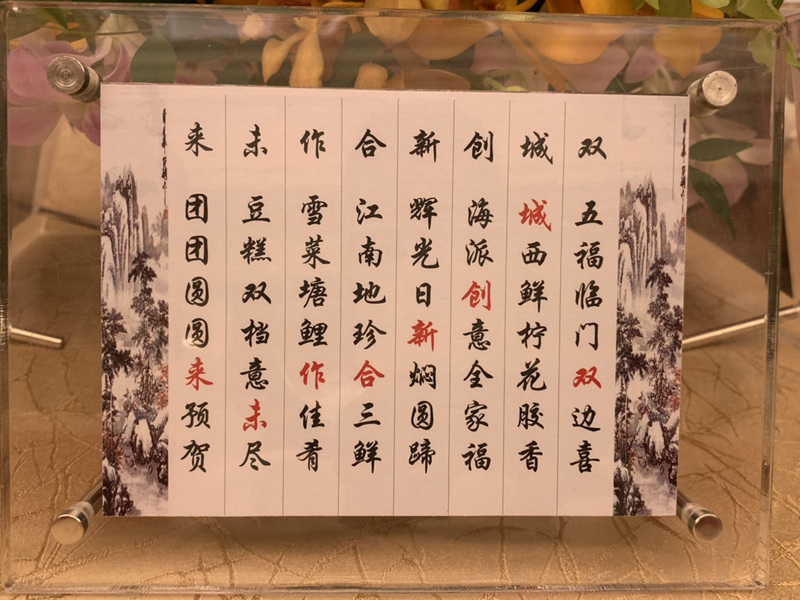 双 五福临门双边喜
城 城西鲜柠花胶香
创 海派创意全家福
新 辉光日新焖圆蹄
合 江南地珍合三鲜
作 雪菜塘鲤作佳肴
未 豆糕双档意未尽
来 团团圆圆来预贺